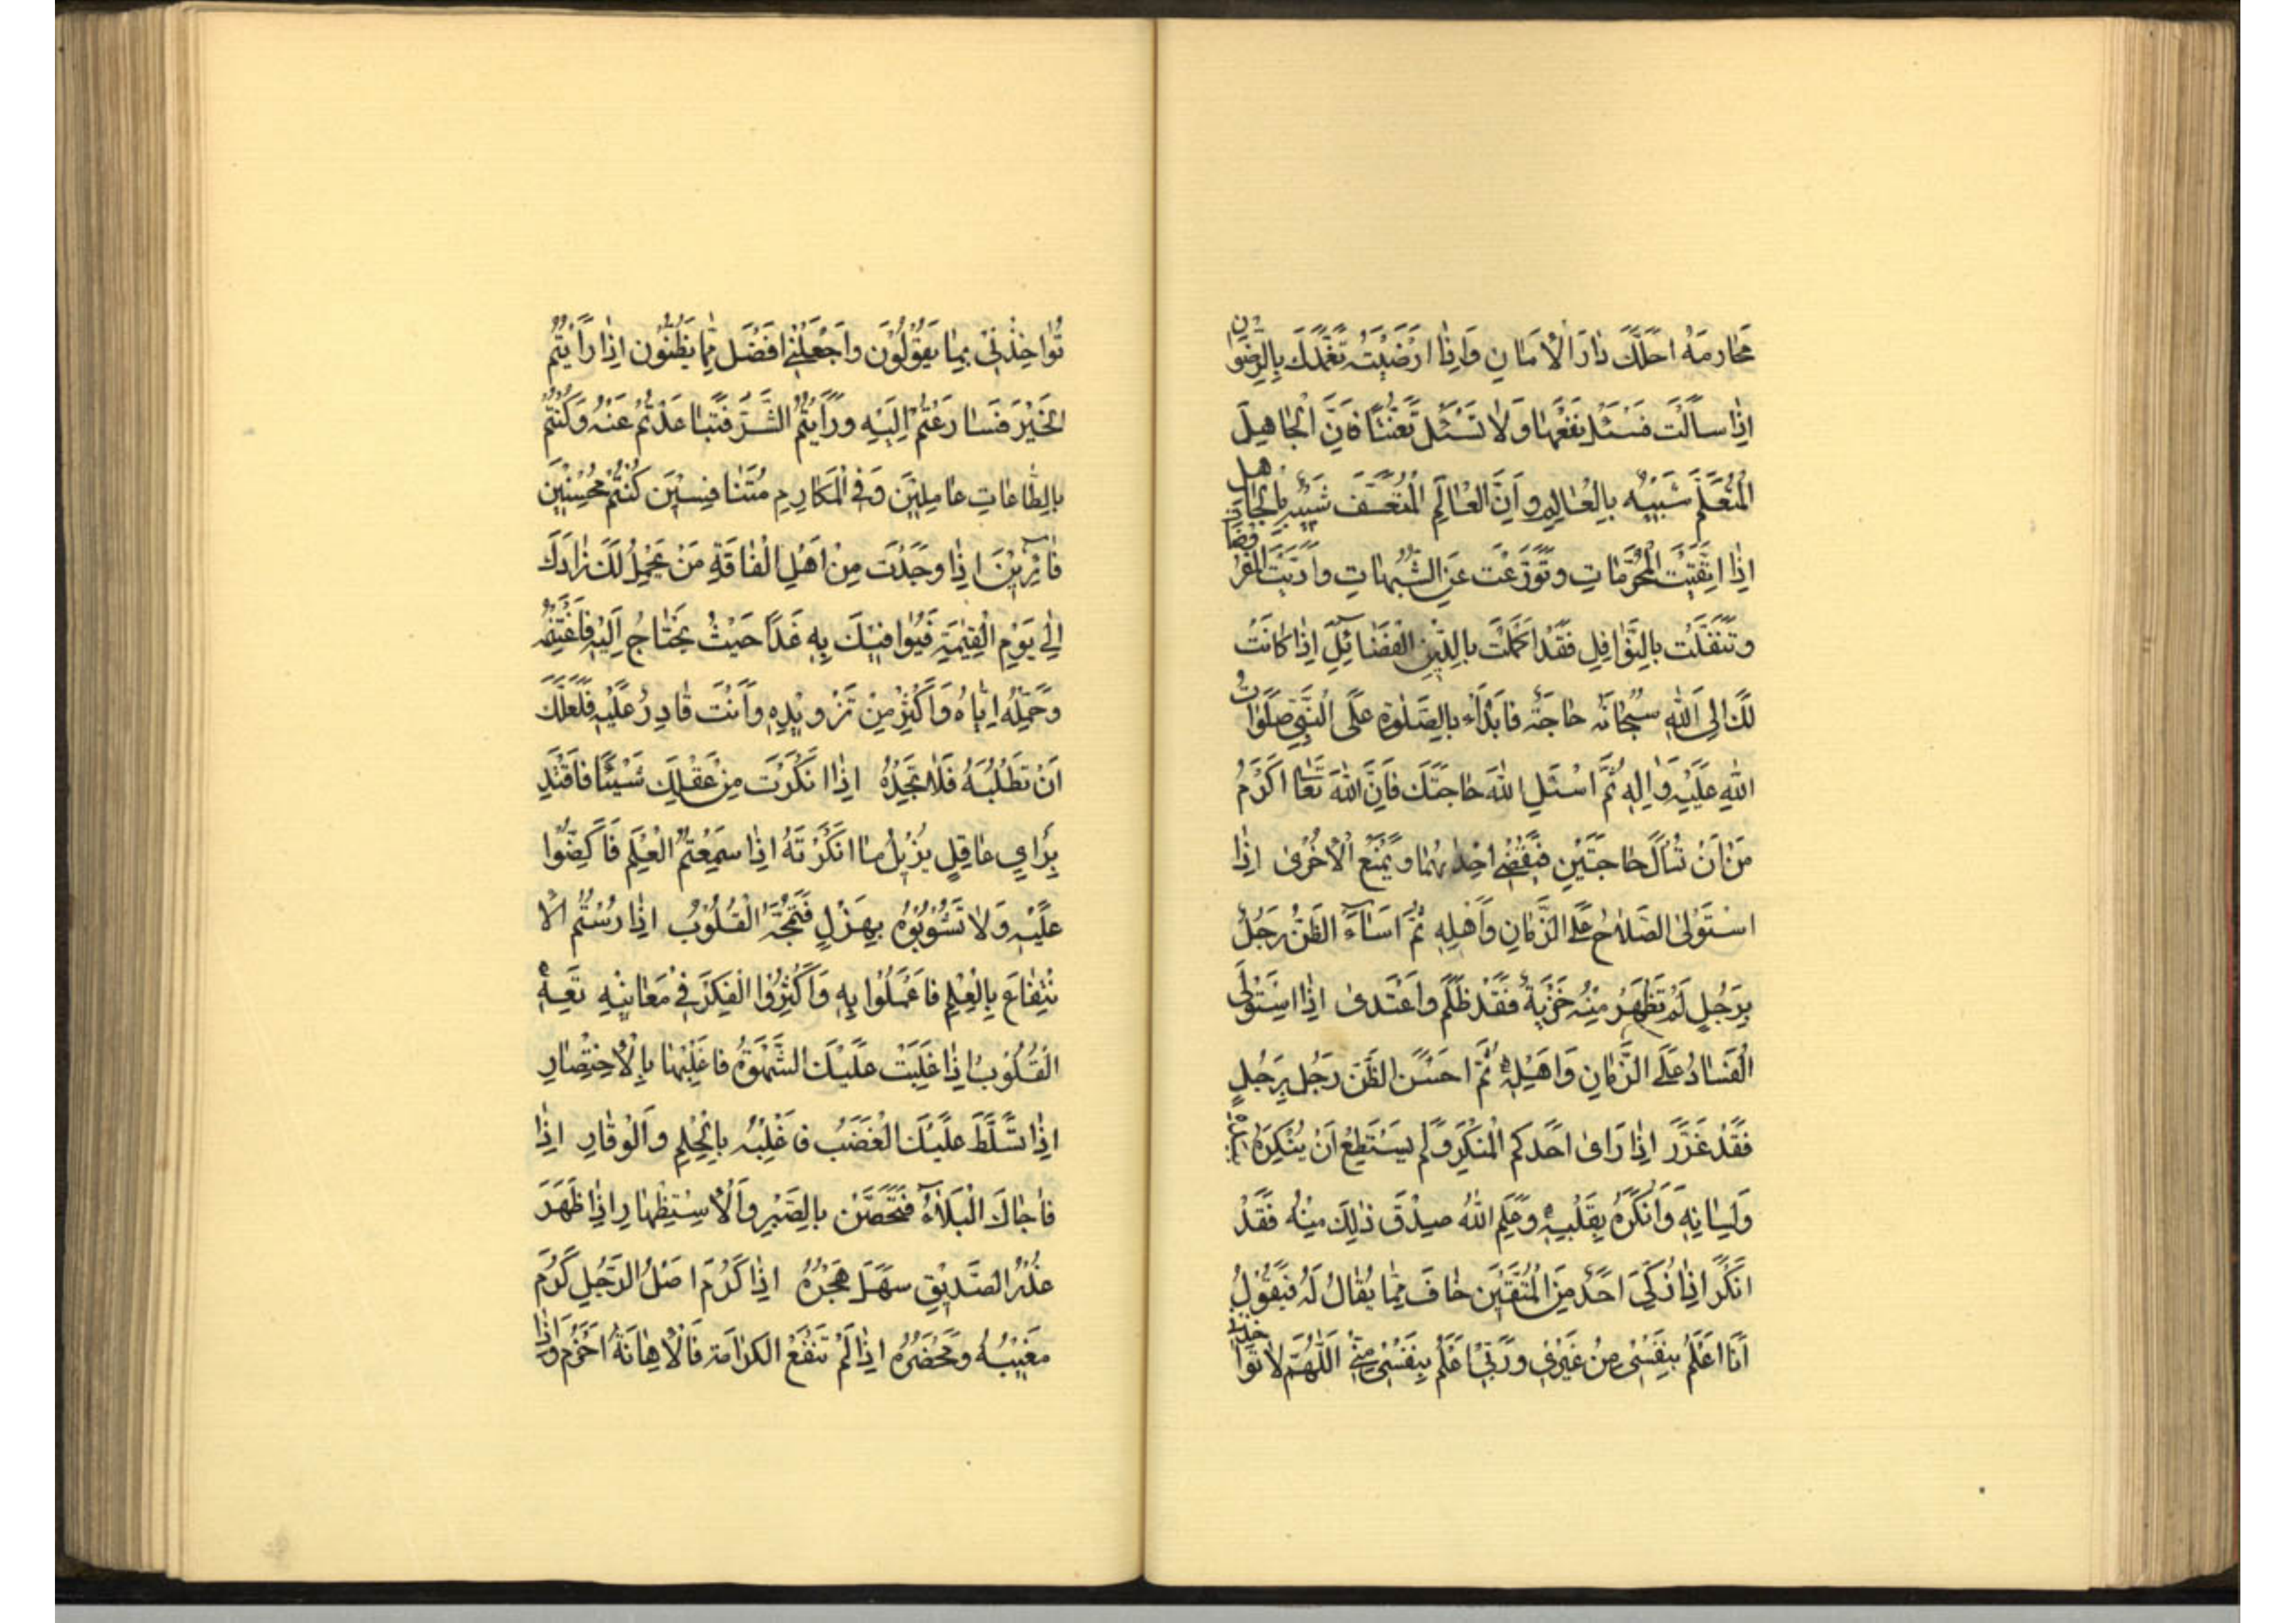 مَحارِمَهُ اَحَلَّكَ دارَ الْاَمانِ وَاِذا اَرْضَيْتَهُ تَغَمَّدَكَ بِالرِّضْوانِ
اِذا سَاَلْتَ فَسْئَلْ تَفَقُّهاً وَلا تَسْئَلْ تَعَنُّتاً فَاِنَّ الْجاهِلَ
الْمُتَعَلِّمَ شَبِيهٌ بِالْعالِمِ وَاِنَّ الْعالِمَ الْمُتَعَسِّفَ شَبِيهٌ بِالْجاهِلِ
اِذَا اتَّقَيْتَ الْمُحَرَّماتِ وَتَوَرَّعْتَ عَنِ الشُّبُهاتِ وَاَدَّيْتَ الْمَفْرُوضاتِ
وَتَنَفَّلْتَ بِالنَّوافِلِ فَقَدْ اَكْمَلْتَ بِالدِّينِ الْفَضائِلَ اِذا كانَتْ
لَكَ اِلَى اللهِ سُبْحانَهُ حاجَةٌ فَابْدَاْ بِالصَّلوةِ عَلَى النَّبِيِّ صَلَواتُ
اللهِ عَلَيْهِ وَالِهِ ثُمَّ اسْئَلِ اللهَ حاجَتَكَ فَاِنَّ اللهَ تَعالى اَكْرَمُ
مِنْ اَنْ يُسْاَلَ حاجَتَيْنِ فَيَقْضِيَ اِحْدايهُما وَيَمْنَعَ الْاُخْرى اِذَا
اسْتَوْلَى الصَّلاحُ عَلَى الزَّمانِ وَاَهْلِهِ ثُمَّ اَساءَ الظَّنَّ رَجُلٌ
بِرَجُلٍ لَمْ تَظْهَرْ مِنْهُ خَزْيَةٌ فَقَدْ ظَلَمَ وَاعْتَدى اِذَا اسْتَوْلَى
الْفَسادُ عَلَى الزَّمانِ وَاَهْلِهِ ثُمَّ اَحْسَنَ الظَّنَّ رَجُلٌ بِرَجُلٍ
فَقَدْ غَرَّرَ اِذا رَاى اَحَدُكُمُ الْمُنْكَرَ وَلَمْ يَسْتَطِعْ اَنْ يُنْكِرَهُ
وَلِسانِهِ وَاَنْكَرَهُ بِقَلْبِهِ وَعَلِمَ اللهُ صِدْقَ ذلِكَ مِنْهُ فَقَدْ
اَنْكَرَ اِذا زُكِّيَ اَحَدٌ مِنَ الْمُتَّقِينَ خافَ مِمّا يُقالُ لَهُ فَيَقُولُ
اَنَا اَعْلَمُ بِنَفْسِي مِنْ غَيْرِي وَرَبِّي اَعْلَمُ بِنَفْسِي مِنِّي اَللّهُمَّ لا تُواخِذْنِي
تُواخِذْنِي بِما يَقُولُونَ وَاجْعَلْنِي اَفْضَلَ مِمّا يَظُنُّونَ اِذا رَاَيْتُمُ
الْخَيْرَ فَسارَعْتُمْ اِلَيْهِ وَرَاَيْتُمُ الشَّرَّ فَتَباعَدْتُمْ عَنْهُ وَكُنْتُمْ
بِالطّاعاتِ عامِلِينَ وَفِي الْمَكارِمِ مُتَنافِسِينَ كُنْتُمْ مُحْسِنِينَ
فائِزِينَ اِذا وَجَدْتَ مِنْ اَهْلِ الْفاقَةِ مَنْ يَحْمِلُ لَكَ زادَكَ
اِلى يَوْمِ الْقِيمَةِ فَيُوافِيكَ بِهِ غَداً حَيْثُ تَحْتاجُ اِلَيْهِ فَاغْتَنِمْهُ
وَحَمِّلْهُ اِيّاهُ وَاَكْثِرْ مِنْ تَزْوِيدِهِ وَاَنْتَ قادِرٌ عَلَيْهِ فَلَعَلَّكَ
اَنْ تَطْلُبَهُ فَلا تَجِدُهُ اِذا اَنْكَرْتَ مِنْ عَقْلِكَ شَيْئاً فَاقْتَدِ
بِرَايِ عاقِلٍ يُزِيلُ ما اَنْكَرْتَهُ اِذا سَمِعْتُمُ الْعِلْمَ فَاكْظِمُوا
عَلَيْهِ وَلا تَشُوبُوهُ بِهَزْلٍ فَتَمُجَّهُ الْقُلُوبُ اِذا رُمْتُمُ الْا
نْتِفاعَ بِالْعِلْمِ فَاعْمَلُوا بِهِ وَاَكْثِرُوا الْفِكْرَ فِي مَعانِيهِ تَعِهِ
الْقُلُوبُ اِذا غَلَبَتْ عَلَيْكَ الشَّهْوَةُ فَاغْلِبْها بِالْاِخْتِصارِ
اِذا تَسَلَّطَ عَلَيْكَ الْغَضَبُ فَاغْلِبْهُ بِالْحِلْمِ وَالْوَقارِ اِذا
فاجاكَ الْبَلاءُ فَتَحَصَّنْ بِالصَّبْرِ وَالْاِسْتِظْهارِ اِذا ظَهَرَ
غَدْرُ الصَّدِيقِ سَهُلَ هَجْرُهُ اِذا كَرُمَ اَصْلُ الرَّجُلِ كَرُمَ
مَغِيبُهُ وَمَحْضَرُهُ اِذا لَمْ تَنْفَعِ الْكَرامَةُ فَالْاِهانَةُ اَحْزَمُ وَاِذا